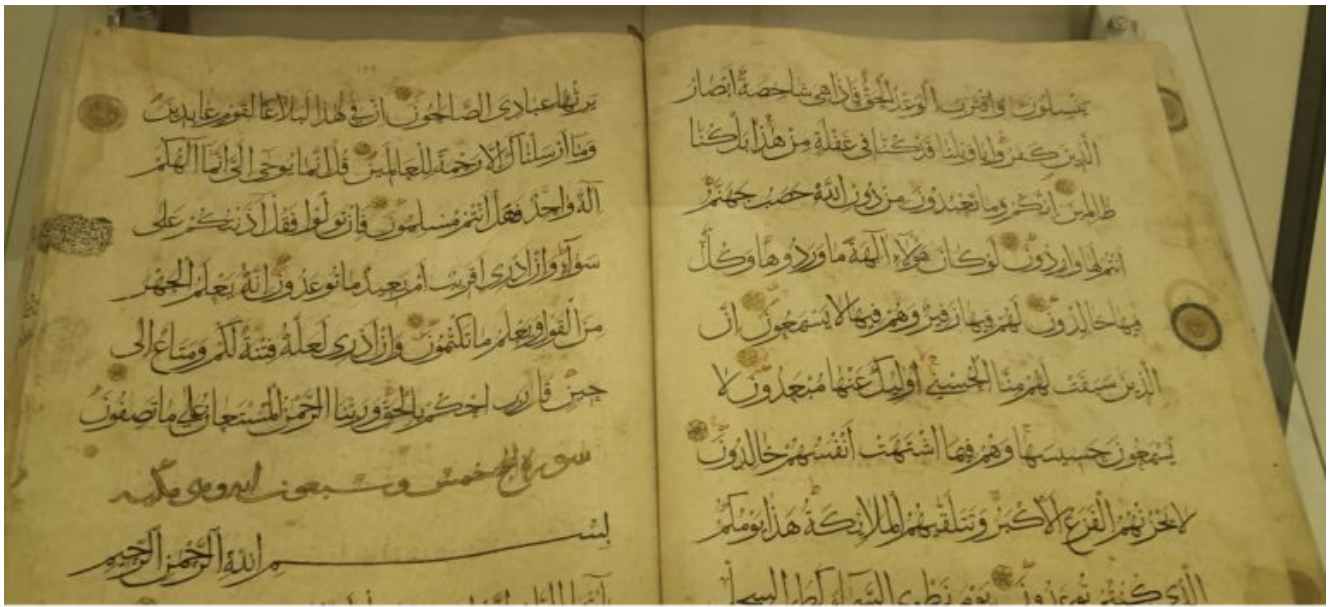 ينسلون واقترب الوعد الحق فاذا هي شاخصة أبصار
الذين كفروا يا ويلنا قد كنا في غفلة من هذا بل كنا
ظالمين إنكم وما تعبدون من دون الله حصب جهنم
أنتم لها واردون لو كان هؤلاء آلهة ما وردوها وكل
فيها خالدون لهم فيها زفير وهم فيها لا يسمعون إن
الذين سبقت لهم منا الحسنى أوليك عنها مبعدون لا
يسمعون حسيسها وهم فيما اشتهت أنفسهم خالدون
لا يحزنهم الفزع الأكبر وتتلقيهم الملائكة هذا يومكم
الذي كنتم توعدون يوم نطوي السماء كطي السجل
يرثها عبادي الصالحون إن في هذا لبلاغا لقوم عابدين
وما أرسلناك إلا رحمة للعالمين قل إنما يوحى إلي أنما إلهكم
إله واحد فهل أنتم مسلمون فإن تولوا فقل آذنتكم على
سواء وإن أدري أقريب أم بعيد ما توعدون إنه يعلم الجهر
من القول ويعلم ما تكتمون وإن أدري لعله فتنة لكم ومتاع إلى
حين قال رب احكم بالحق وربنا الرحمن المستعان على ما تصفون
سورة الحج خمس وسبعون آية وهي مكية
بسم الله الرحمن الرحيم